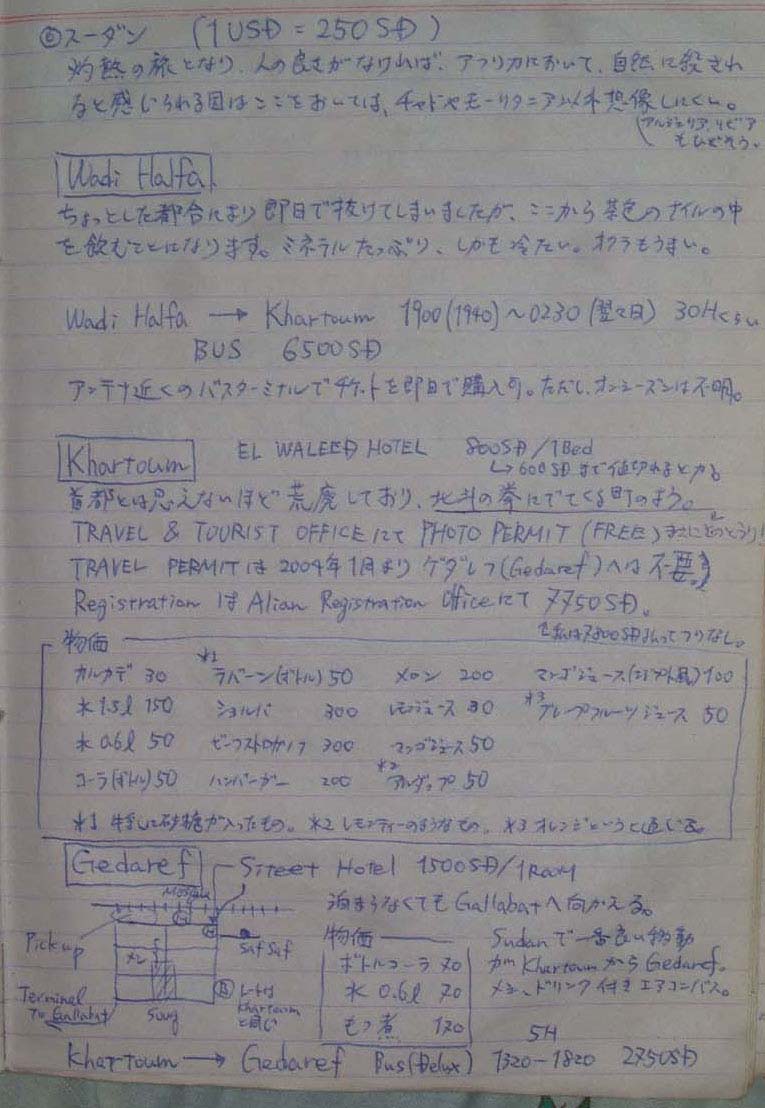 ⑥スーダン (1USD = 250SD)
灼熱の旅となり、人の良さがなければ、アフリカにおいて、自然に殺され
ると感じられる国はここをおいては、チャドやモーリタニア以外想像しにくい。
アルジェリア、リビア
もひどそう。
Wadi Halfa
ちょっとした都合により即日で抜けてしまいましたが、ここから茶色のナイルの中
を飲むことになります。ミネラルたっぷり、しかも冷たい。オクラもうまい。
Wadi Halfa → Khartoum 1900(1940)〜0230(翌々日) 30Hくらい
BUS 6500SD
アンテナ近くのバスターミナルでチケットを即日で購入可。ただし、オンシーズンは不明。
Khartoum EL WALEED HOTEL 800SD/1Bed
↳600SDまで値切れるとか
首都とは思えないほど荒廃しており、北斗の拳にでてくる町のよう。
TRAVEL & TOURIST OFFICEにて PHOTO PERMIT (FREE)
TRAVEL PERMITは2004年1月より ゲダレフ(Gedaref)へは不要。
Registration はAlian Registration Officeにて 7750SD。
私は7800SD払ってつりなし。
物価
カルカデ 30 *1 ラバーン(ボトル) 50 メロン 200 マンゴジュース(エジプト風) 100
水1.5l 150 ショルバ 300 レモンジュース 30 *3 グレープフルーツジュース 50
水0.6l 50 ビーフストロガノフ 300 マンゴジュース 50
コーラ(ボトル) 50 ハンバーガー 200 *2 50
*1 牛乳に砂糖が入ったもの。 *2 レモンティーのようなもの。 *3 オレンジというと通じる。
Gedaref Street Hotel 1500SD/1ROOM
泊まらなくてもGallabatへ向かえる。
Mosque
Pick up
メシ
Saf Saf
Terminal
To Gallabat
Souq
Ⓑ レートは
Khartoum
と同じ
物価
ボトルコーラ 70
水 0.6l 70
もつ煮 170
Sudanで一番良い移動
がKhartoumからGedaref。
メシ、ドリンク付きエアコンバス。
5H
Khartoum → Gedaref Bus(Delux) 1320-1820 2750SD